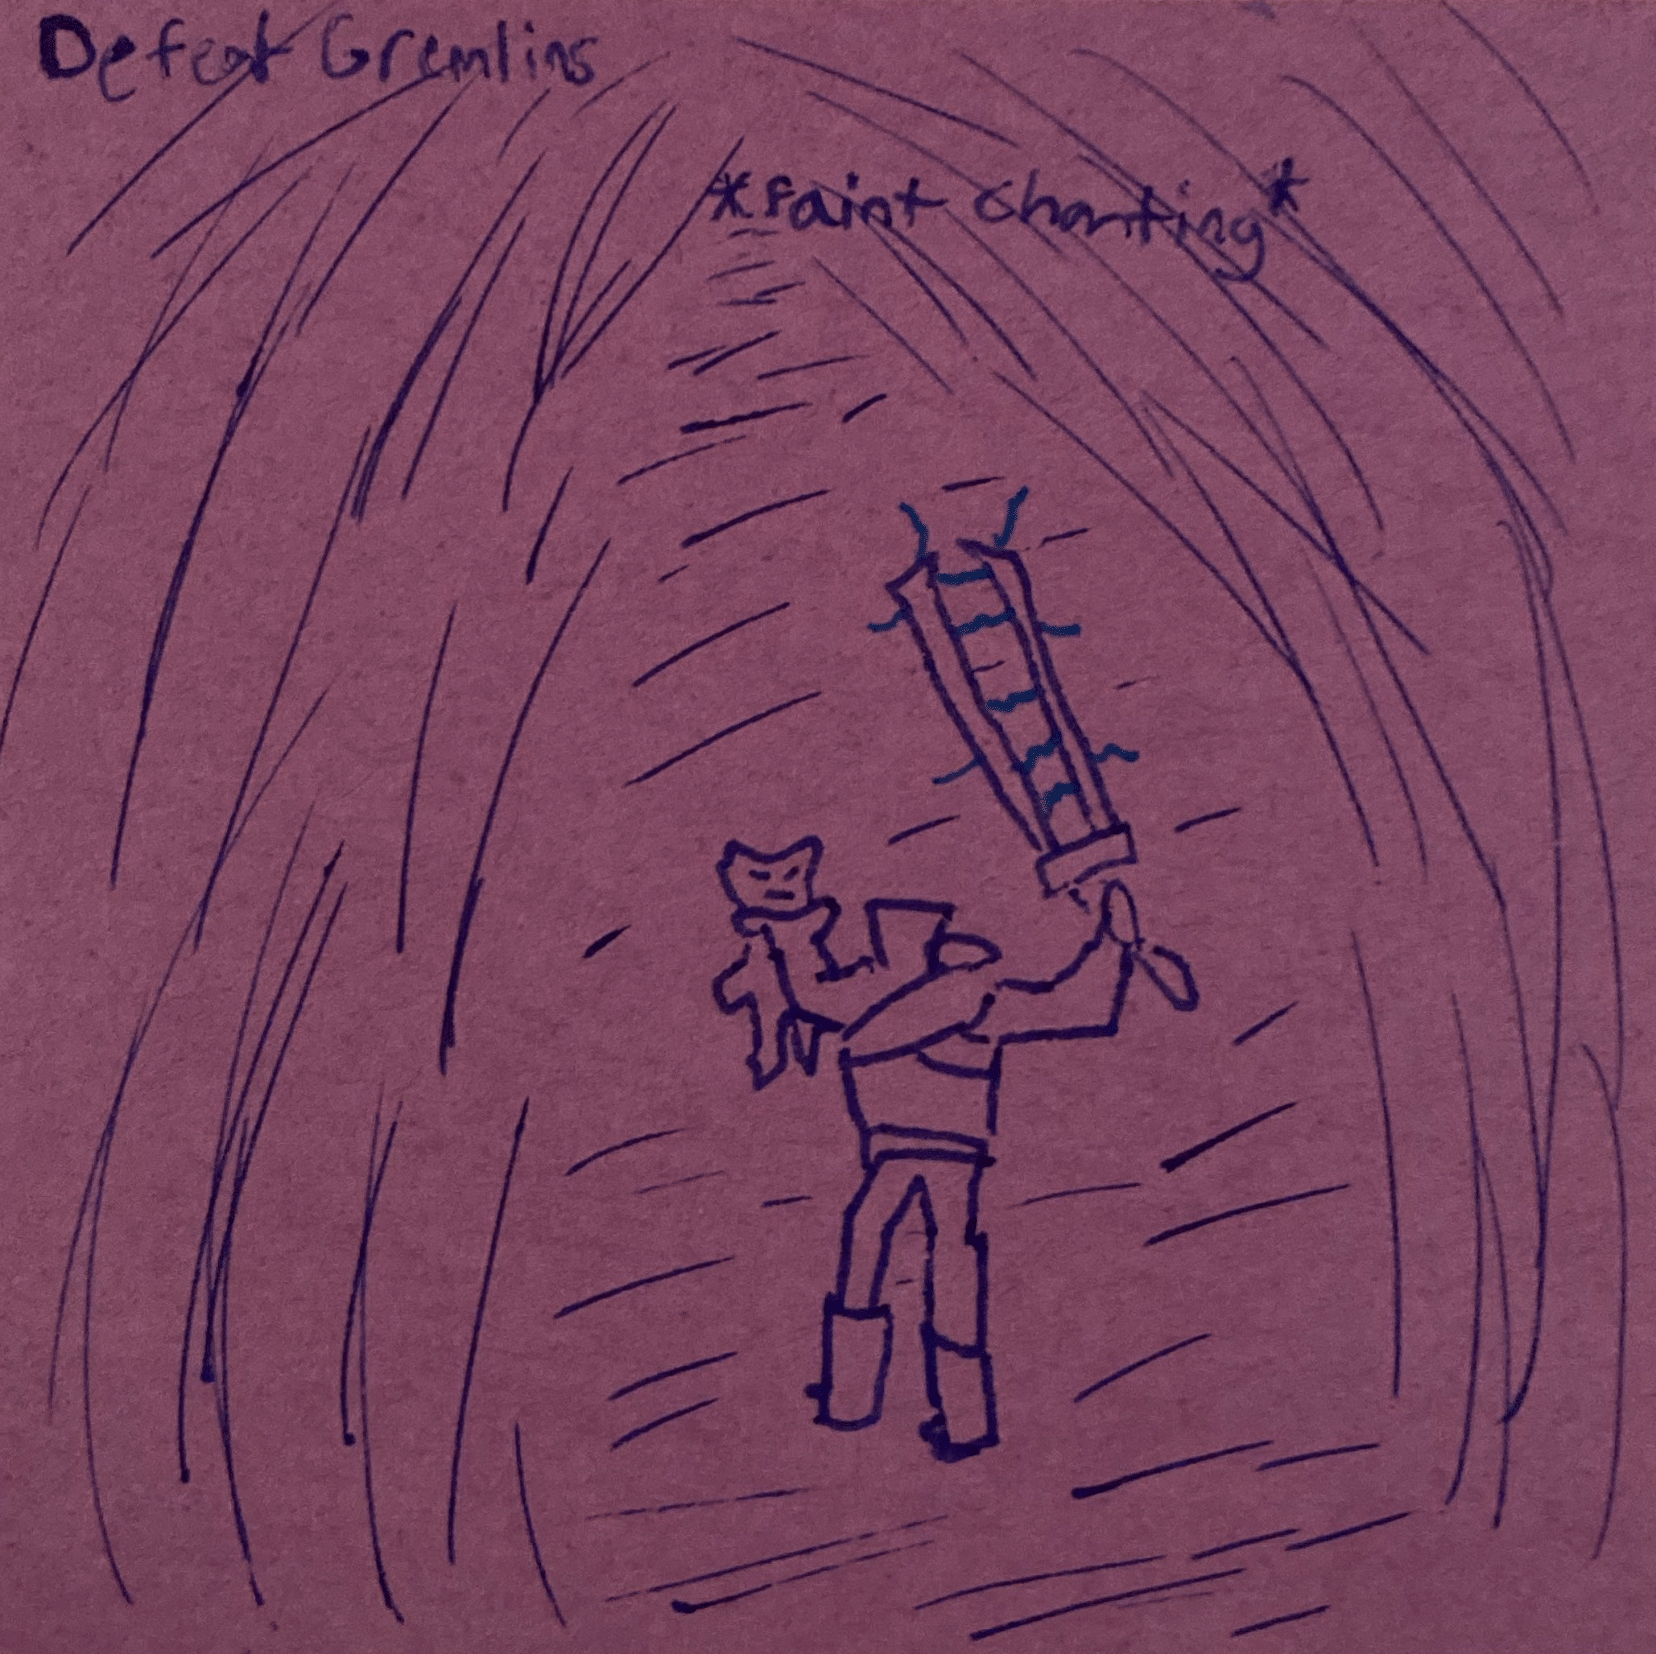 Defeat Gremlins
*Faint chanting*